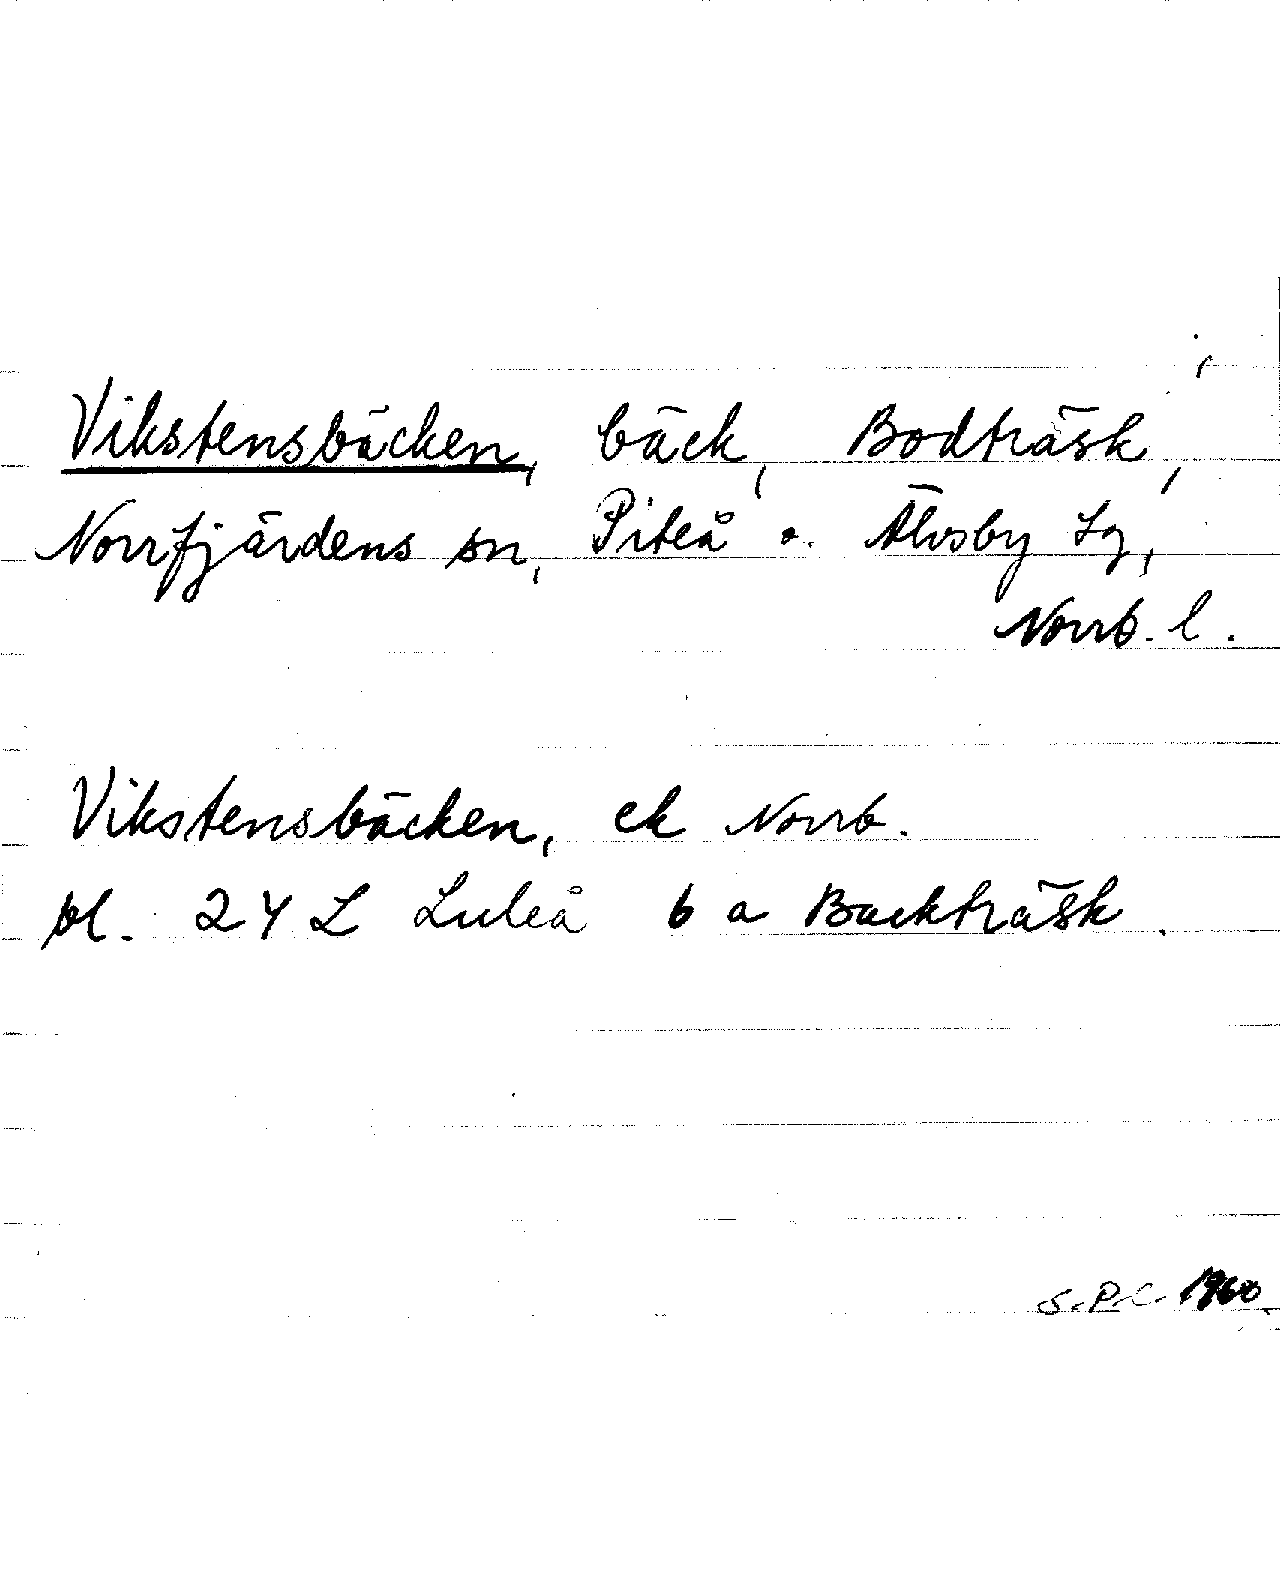 Vikstensbäcken, bäck, Bodträsk,
Norrfjärdens sn, Piteå o. Älvsby tg,
Norrb. l.
Vikstensbäcken, ek Norrb.
bl. 24 L Luleå 6 a Backträsk.
S.P.C. 1960.